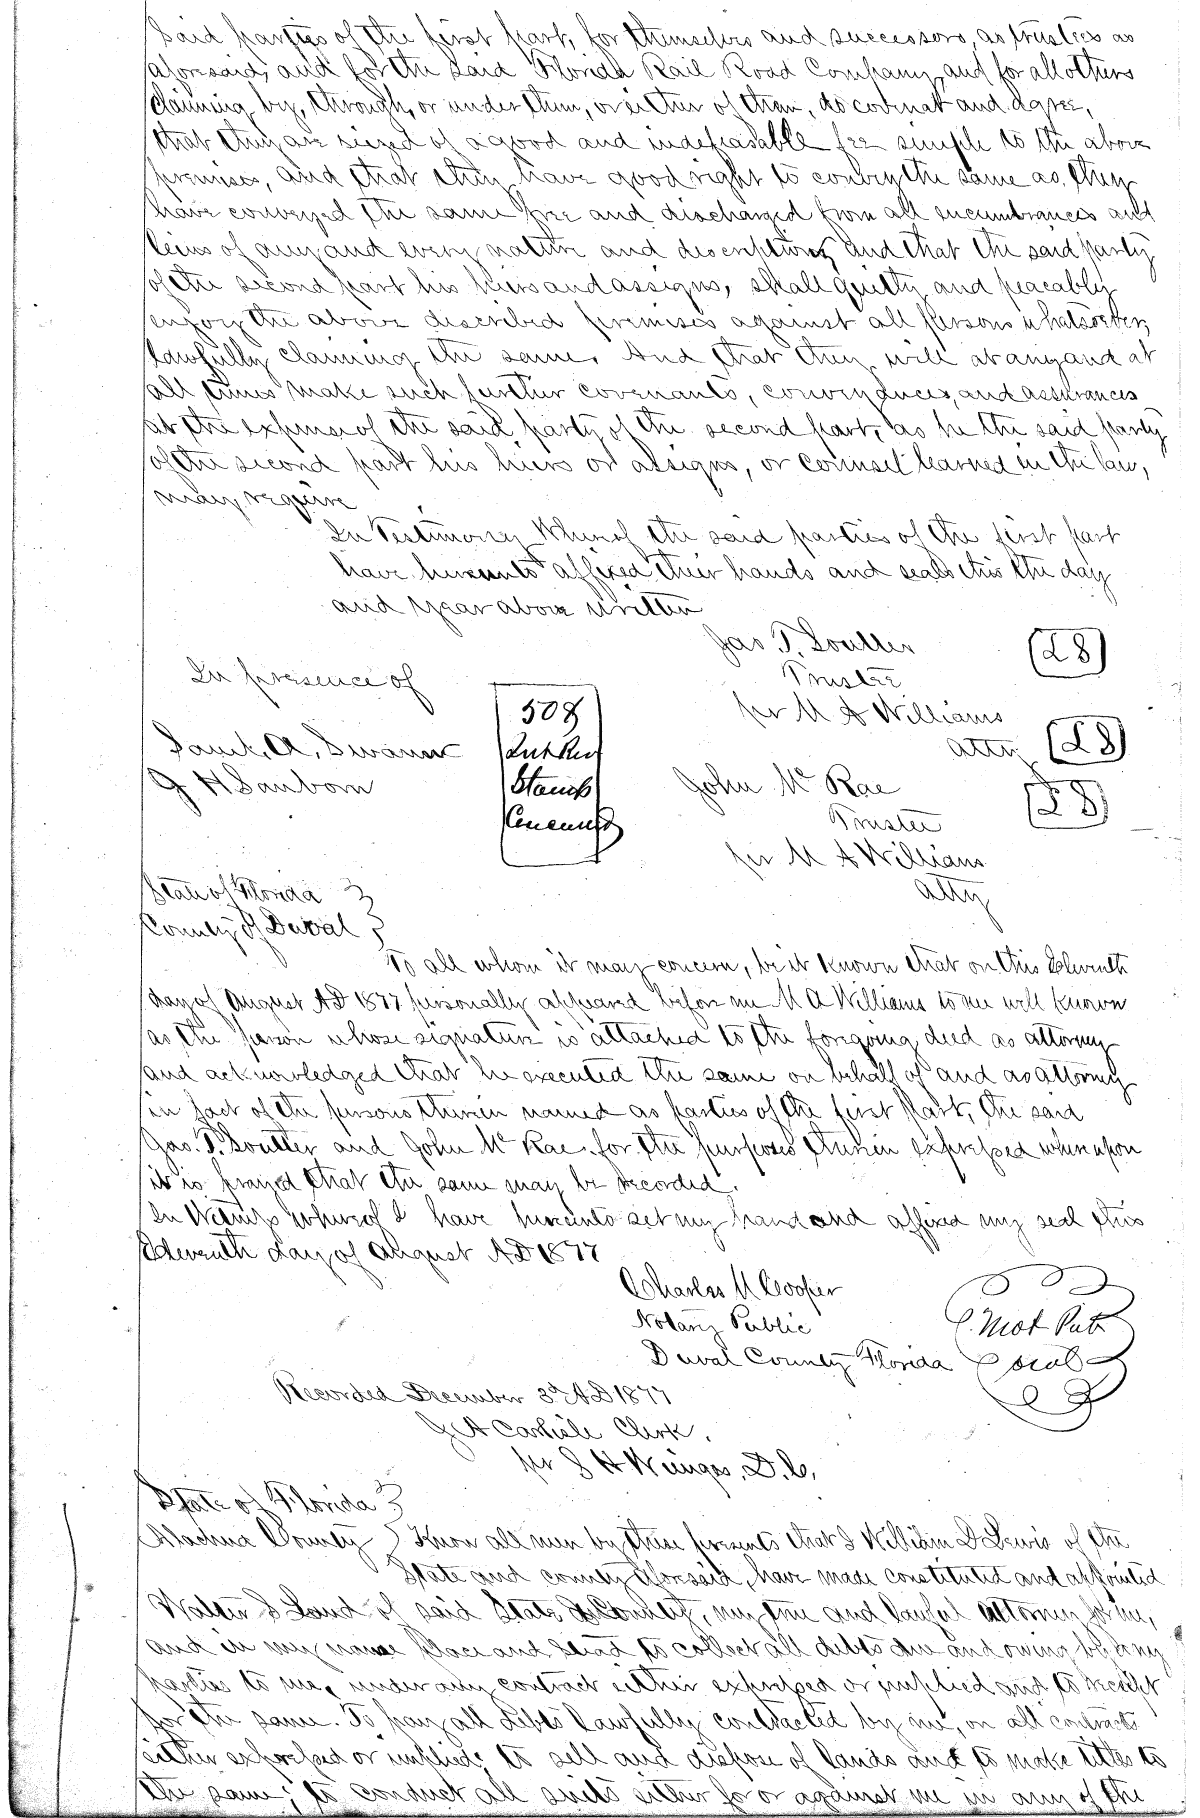 Said parties of the first part, for themselves and successors, as trustees as
aforesaid, and for the said Florida Rail Road Company, and for all others
claiming by, through, or under them, or either of them, do covenat and agree,
that they are seized of a good and indefeasable fee simple to the above
premises, and that they have good right to convey the same as they
have conveyed the same free and discharged from all incumbrances and
leins of any and every nature and description, and that the said party
of the second part his hiers and assigns, shall quietly and peacably
enjoy the above described premises against all persons whatsoever,
lawfully claiming the same. And that they will at any and at
all times make such further covenants, conveyances, and assurances
at the expense of the said party of the second part, as he the said party
of the second part his hiers or assigns, or counsel learned in the law,
may require
In Testimony Whereof the said parties of the first part
have hereunto affixed their hands and seals this the day
and year above written
Jas T. Soutter (LS)
Trustee
In presence of
per M A Williams
atty (LS)
50¢
Int Rev
Stamp
Canceled
Saml. A. Swann
G H Sanborn
John McRae (LS)
Trustee
per M A Williams
atty
State of Florida }
County of Duval }
To all whom it may concern, be it known that on this Eleventh
day of August AD 1877 personally appeared before me M A Williams to me well known
as the person whose signature is attached to the forgoing deed as attorney
and acknowledged that he executed the same on behalf of and as attorney
in fact of the persons therein named as parties of the first part, the said
Jas. T. Soutter and John McRae for the purposes therein expressed whereupon
it is prayed that the same may be recorded.
In Witness whereof I have hereunto set my hand and affixed my seal this
Eleventh day of August AD 1877
Charles M Cooper
Notary Public
Duval County Florida
Not Pub
seal
Recorded December 3d AD 1877
J A Carlisle Clerk.
per S H Wienges, D.C.
State of Florida }
Alachua County } Know all men by these presents that I William D Lewis of the
State and county aforesaid, have made constituted and appointed
Walter S Land of said State & County, my true and lawful attorney for me,
and in my name place and stead to collect all debts due and owing by any
parties to me, under any contract either expressed or implied and to receipt
for the same. To pay all debts lawfully contracted by me, on all contracts
either expressed or implied; to sell and dispose of lands and to make titles to
the same; to conduct all suits either for or against me in any of the